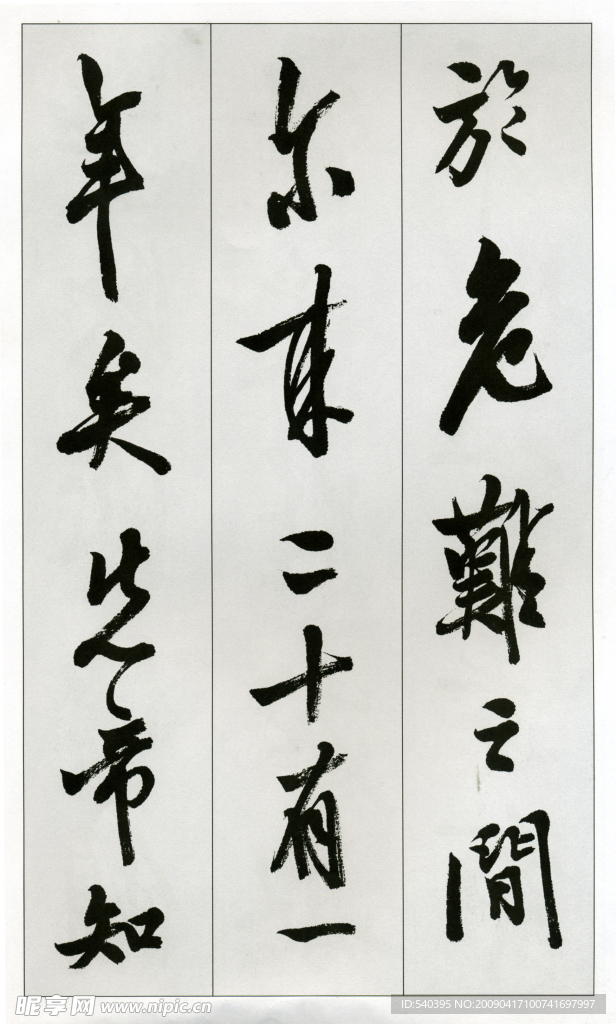 於危難之間
尔来二十有一
年矣先帝知
昵享网 www.nipic.cn
ID:540395 NO:20090417100741697997